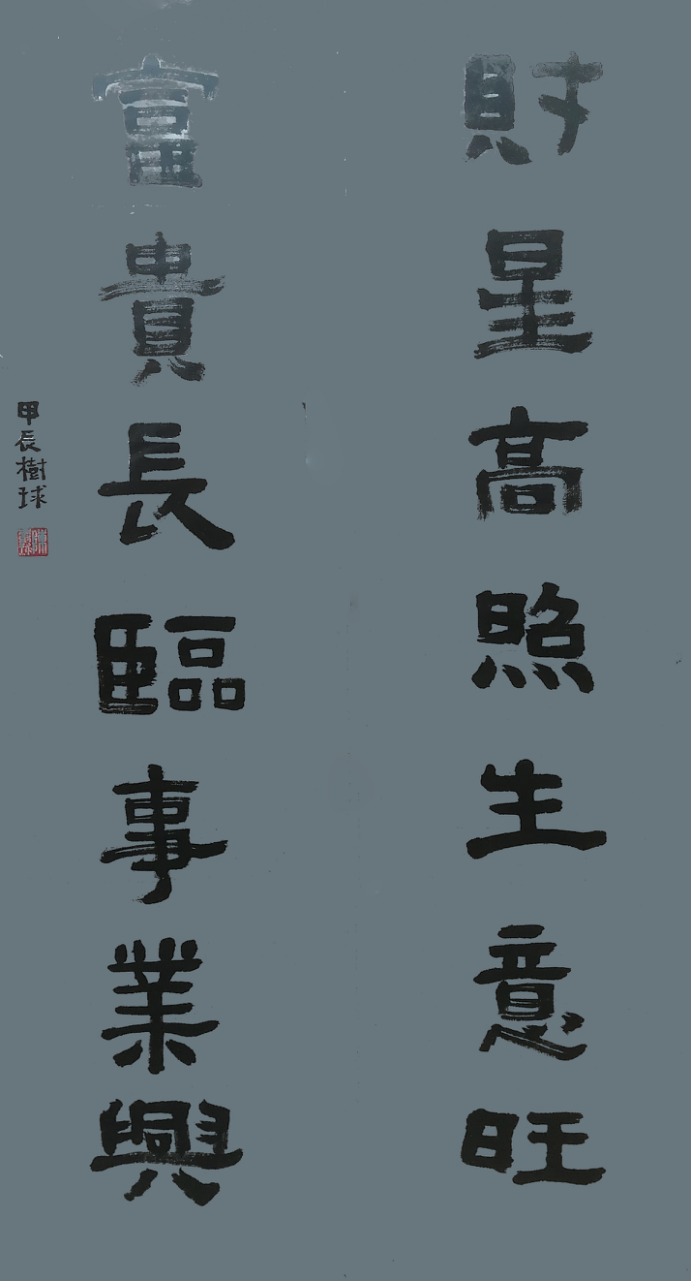 財星高照生意旺
富貴長臨事業興
甲辰樹球